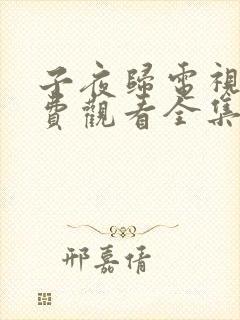 子夜歸電視
費觀看全集
邢嘉倩